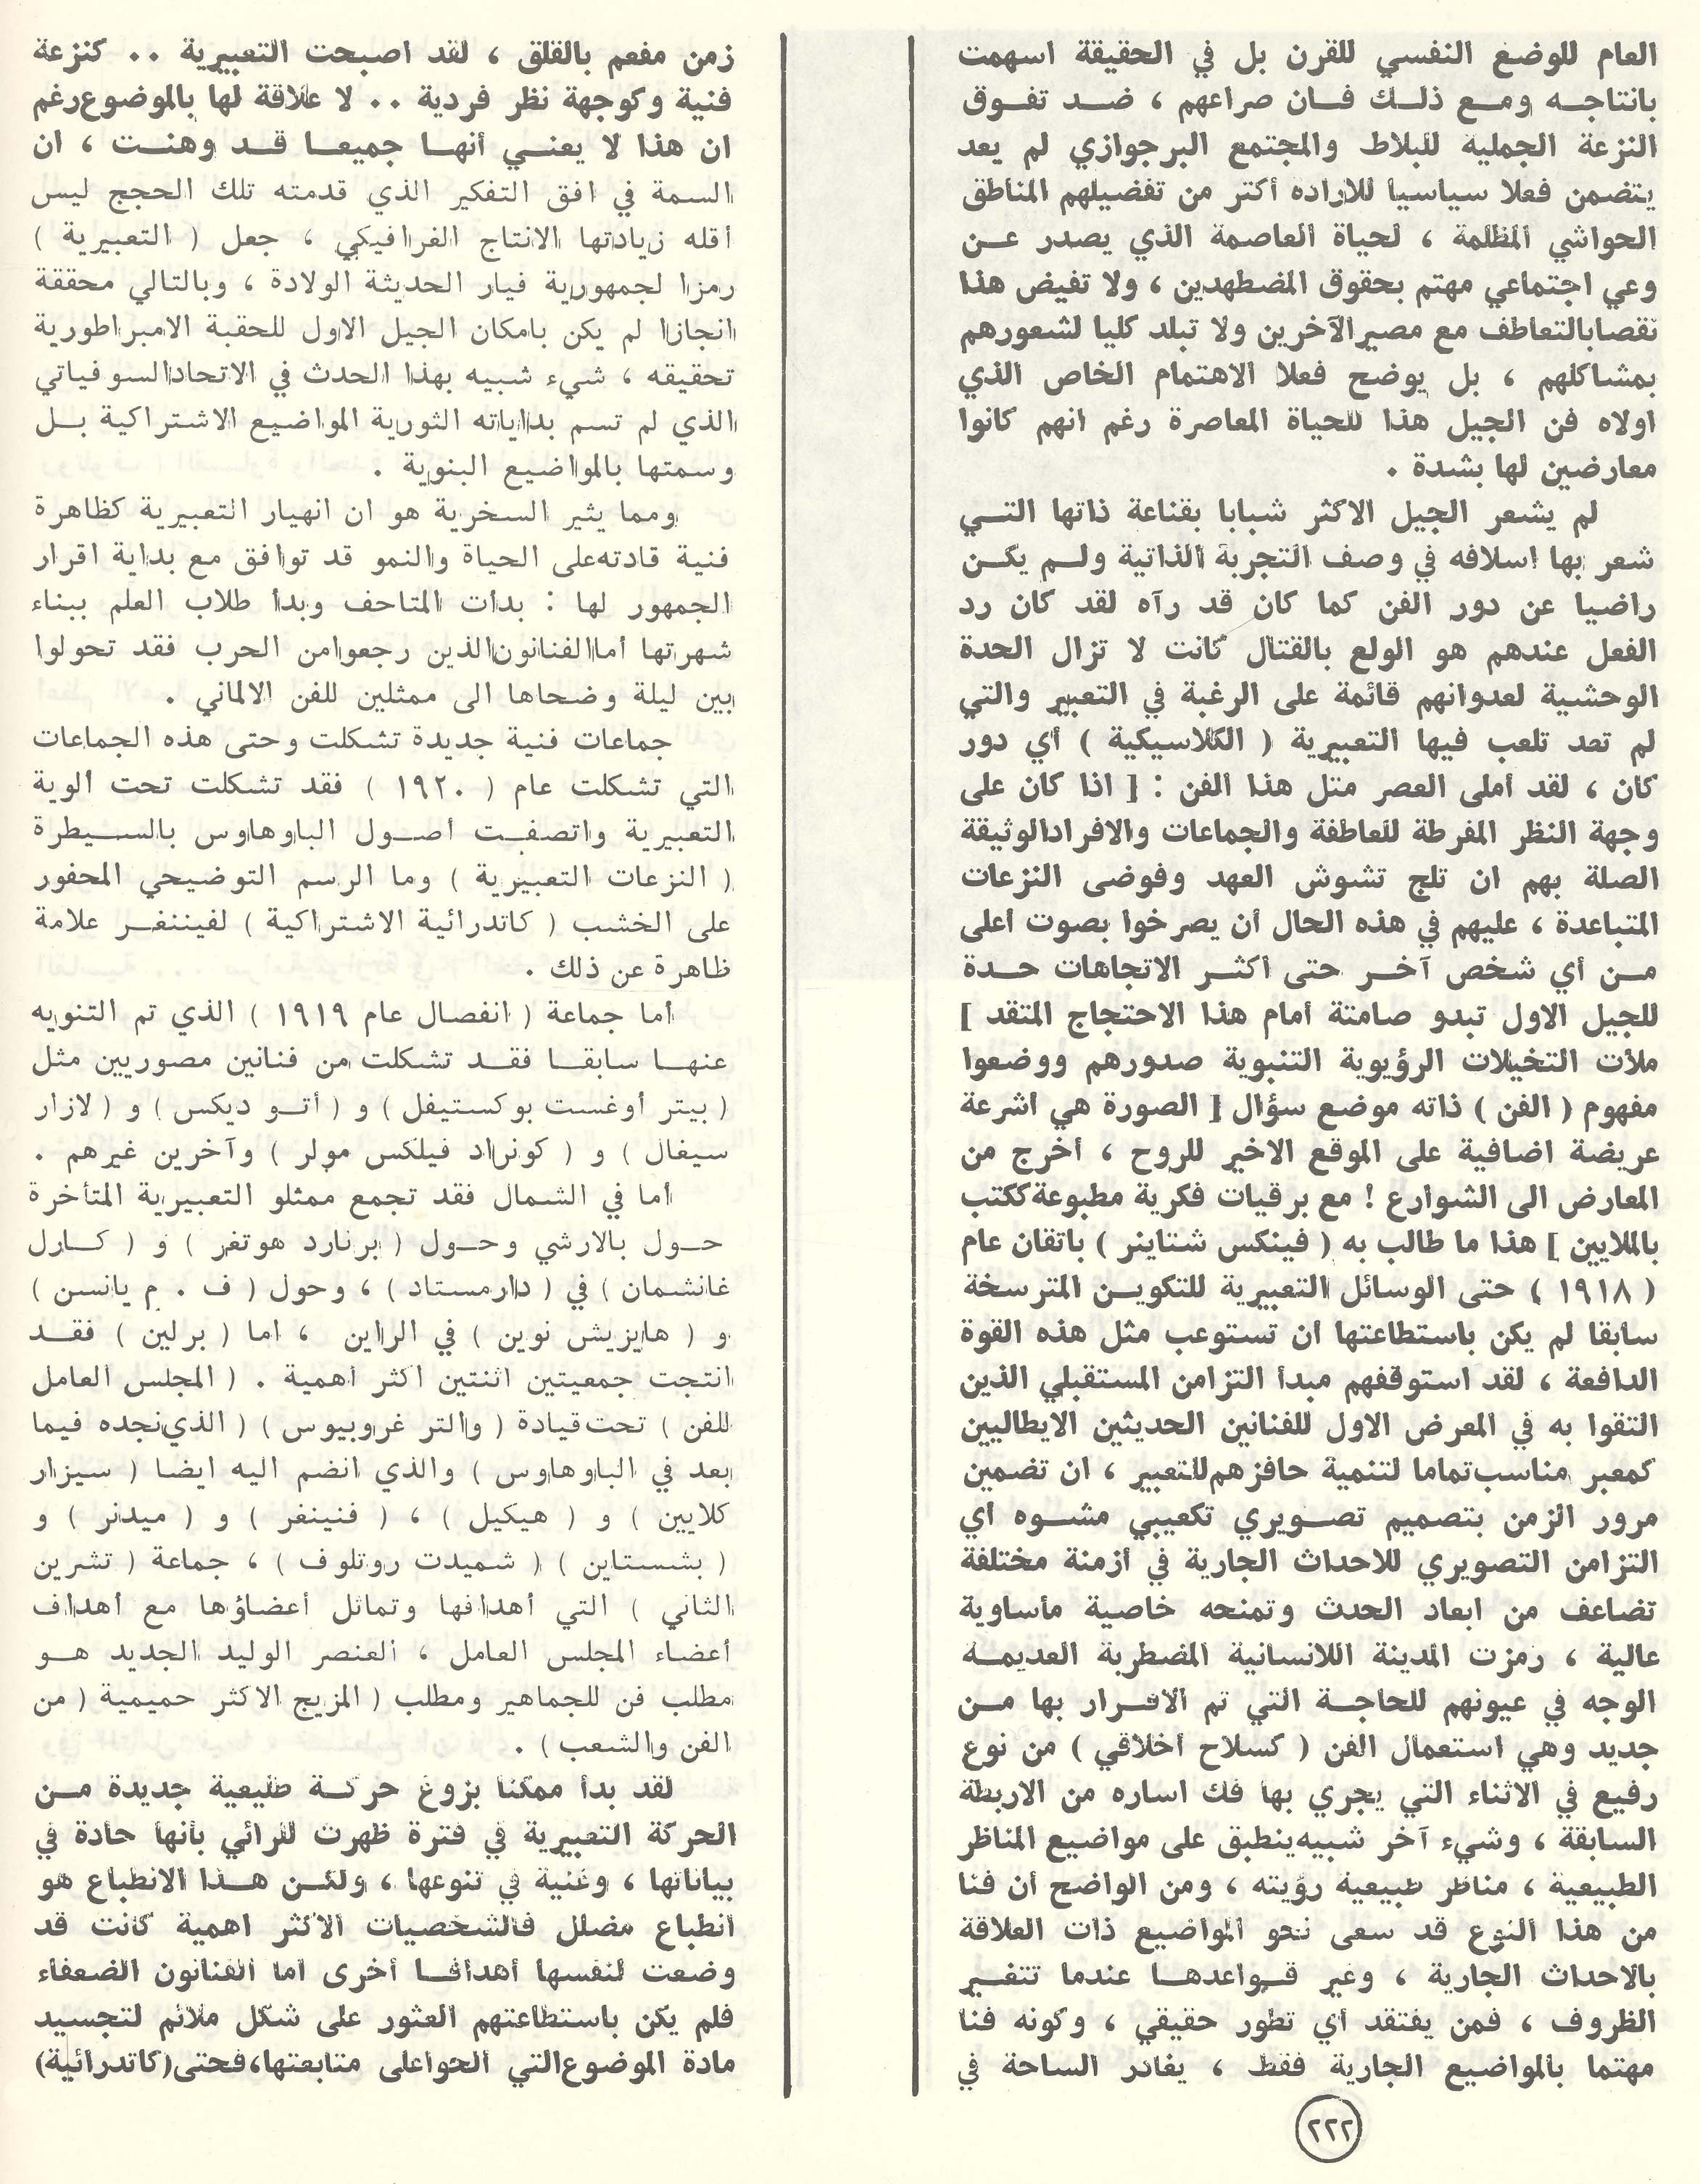 العام للوضع النفسي للقرن بل في الحقيقة اسهمت
بانتاجـه ومـع ذلـك فـان صراعهم ، ضـد تفـوق
النزعة الجملية للبلاط والمجتمع البرجوازي لم يعد
يتضمن فعلا سياسيا للاراده أكثر من تفضيلهم المناطق
الحواشي المظلمة ، لحياة العاصمة الذي يصدر عـن
وعي اجتماعي مهتم بحقوق المضطهدين ، ولا تفيض هذا
نقصابالتعاطف مع مصيرالآخرين ولا تبلد كليا لشعورهم
بمشاكلهم ، بل يوضح فعلا الاهتمام الخاص الذي
اولاه فن الجيل هذا للحياة المعاصرة رغم انهم كانوا
معارضين لها بشدة .
لم يشعر الجيل الاكثر شبابا بقناعة ذاتها التـي
شعر بها اسلافه في وصف التجربة الذاتية ولـم يكـن
راضيا عن دور الفن كما كان قد رآه لقد كان رد
الفعل عندهم هو الولع بالقتال كانت لا تزال الحدة
الوحشية لعدوانهم قائمة على الرغبة في التعبير والتي
لم تعد تلعب فيها التعبيرية ( الكلاسيكية ) أي دور
كان ، لقد أملى العصر مثل هذا الفن : [ اذا كان على
وجهة النظر المفرطة للعاطفة والجماعات والافرادالوثيقة
الصلة بهم ان تلج تشوش العهد وفوضى النزعات
المتباعدة ، عليهم في هذه الحال أن يصرخوا بصوت أعلى
مـن أي شخص آخـر حتى أكثـر الاتجاهات حـدة
للجيل الاول تبدو صامتة أمام هذا الاحتجاج المتقد ]
ملأت التخيلات الرؤيوية التنبوية صدورهم ووضعوا
مفهوم ( الفن ) ذاته موضع سؤال [ الصورة هي اشرعة
عريضة اضافية على الموقع الاخير للروح ، أخرج من
المعارض الى الشوارع ! مع برقيات فكرية مطبوعة ككتب
بالملايين ] هذا ما طالب به ( فينكس شتاينر ) باتقان عام
( ١٩١٨ ) حتى الوسائل التعبيرية للتكويـن المترسخة
سابقا لم يكن باستطاعتها أن تستوعب مثل هذه القوة
الدافعة ، لقد استوقفهم مبدأ التزامن المستقبلي الذين
التقوا به في المعرض الاول للفنانين الحديثين الايطاليين
كمعبر مناسب تماما لتنمية حافزهم للتعبير ، ان تضمين
مرور الزمن بتصميم تصـويري تكعيبي مشـوه أي
التزامن التصويري للاحداث الجارية في أزمنة مختلفة
تضاعف من ابعاد الحدث وتمنحه خاصية مأساوية
عالية ، رمزت المدينة اللانسانية المضطربة العديمـة
الوجه في عيونهم للحاجـة التي تم الاقـرار بها مـن
جديد وهي استعمال الفن ( كسلاح أخلاقي ) من نوع
رفيع في الاثناء التي يجري بها فك اساره من الاربطة
السابقة ، وشيء آخر شبيه ينطبق على مواضيع المناظر
الطبيعية ، مناظر طبيعية رؤيته ، ومن الواضح أن فنا
من هذا النوع قد سعى نحو المواضيع ذات العلاقة
بالاحداث الجارية ، وغير قـواعدهـا عندما تتغـير
الظروف ، فمن يفتقد أي تطور حقيقي ، وكونه فنا
مهتما بالمواضيع الجارية فقط ، يغادر الساحة في
زمن مفعم بالقلق ، لقد اصبحت التعبيرية .. كنزعة
فنية وكوجهة نظر فردية .. لا علاقة لها بالموضوع رغم
ان هذا لا يعنـي أنهـا جميعـا قـد وهنـت ، ان
السمة في افق التفكير الذي قدمته تلك الحجج ليس
أقله زيادتها الانتاج الغرافيكي ، جعل ( التعبيرية )
رمزا لجمهورية فيار الحديثة الولادة ، وبالتالي محققة
انجازا لم يكن بامكان الجيل الاول للحقبة الامبراطورية
تحقيقه ، شيء شبيه بهذا الحدث في الاتحادالسوفياتي
الذي لم تسم بداياته الثورية المواضيع الاشتراكية بـل
وسمتها بالمواضيع البنوية .
ومما يثير السخرية هو ان انهيار التعبيرية كظاهرة
فنية قادته على الحياة والنمو قد توافق مع بداية اقرار
الجمهور لها : بدأت المتاحف وبدأ طلاب العلم ببناء
شهرتها أماالفنانون الذين رجعوامن الحرب فقد تحولوا
بين ليلة وضحاها الى ممثلين للفن الالماني .
جماعات فنية جديدة تشكلت وحتى هذه الجماعات
التي تشكلت عام ( ١٩٢٠ ) فقد تشكلت تحت ألوية
التعبيرية واتصفـت أصـول الباوهاوس بالسـيطرة
( النزعات التعبيرية ) وما الرسم التوضيحي المحفور
على الخشب ( كاتدرائية الاشتراكية ) لفيننغـر علامة
ظاهرة عن ذلك .
أما جماعة ( انفصال عام ١٩١٩ ) الذي تم التنويه
عنهـا سابقـا فقـد تشكلت من فنانين مصوريين مثل
( بيتر أوغست بوكستيفل ) و ( أتـو ديكس ) و ( لازار
سيغال ) و ( كونراد فيلكس مولر ) وآخرين غيرهم .
أما في الشمال فقد تجمع ممثلو التعبيرية المتأخرة
حـول بالارشي وحـول ( برنارد هوتغر ) و ( كـارل
غانشمان ) في ( دارمستاد ) ، وحول ( ف . م يانسن )
و ( هايزيش نوين ) في الراين ، اما ( برلين ) فقـد
انتجت جمعيتين اثنتين اكثر أهمية . ( المجلس العامل
للفن ) تحت قيادة ( والتر غروبيوس ) ( الذي نجده فيما
بعد في الباوهاوس ) والذي انضم اليه ايضا ( سيزار
كلايين ) و ( هيكيل ) ، ( فنينغر ) و ( ميدنر ) و
( بشستاين ) ( شميدت روتلوف ) ، جماعة ( تشرين
الثاني ) التي أهدافها وتماثل أعضاؤها مع أهداف
أعضاء المجلس العامل ، العنصر الوليد الجديد هـو
مطلب فن للجماهير ومطلب ( المزيج الاكثر حميمية ( من
الفن والشعب ) .
لقد بدأ ممكنا بزوغ حركـة طليعية جديدة مـن
الحركة التعبيرية في فترة ظهرت للرائي بأنها حادة في
بياناتها ، وغنية في تنوعها ، ولكـن هـذا الانطباع هو
انطباع مضلل فالشخصيات الاكثر اهمية كانت قد
وضعت لنفسها أهدافـا أخرى اما الفنانون الضعفاء
فلم يكن باستطاعتهم العثور على شكل ملائم لتجسيد
مادة الموضوع التي ألحوا على متابعتها،فحتى(كاتدرائية)
٢٢٢